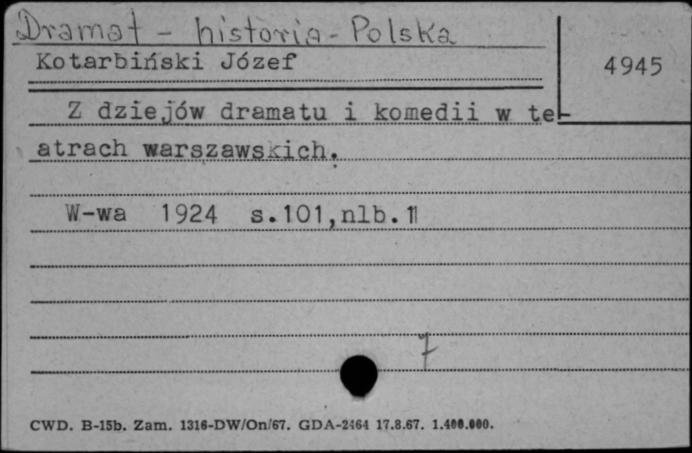 Dramat - historia - Polska
Kotarbiński Józef
4945
Z dziejów dramatu i komedii w te-
atrach warszawskich.
W-wa 1924 s.101,nlb.1
7
CWD. B-15b. Zam. 1316-DW/On/67. GDA-2464 17.8.67. 1.400.000.